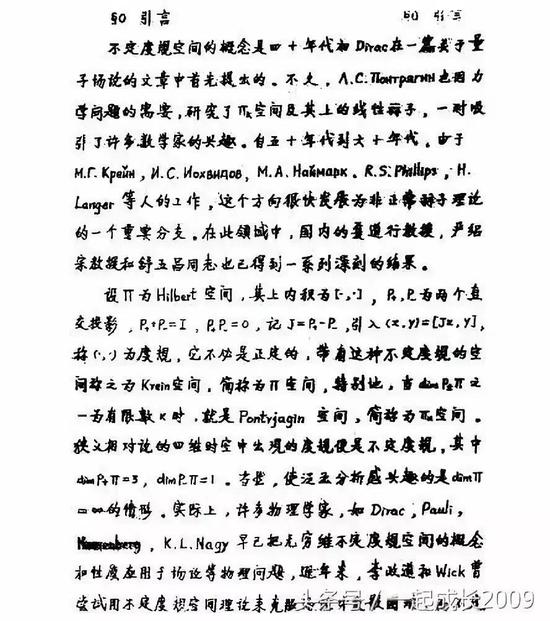 §0 引言 §0 引言
不定度规空间的概念是四十年代初Dirac在一篇关于量
子场论的文章中首先提出的。不久,Л.С.Понтрягин也因力
学问题的需要,研究了Πκ空间及其上的线性算子,一时吸
引了许多数学家的兴趣。自五十年代到六十年代,由于
М.Г.Крейн,И.С.Иохвидов,М.А.Наймарк,R.S.Phillips,H.
Langer等人的工作,这个方向很快发展为非正常算子理论
的一个重要分支。在此领域中,国内的夏道行教授,严绍
宗教授和舒五昌同志也已得到一系列深刻的结果。
设Π为Hilbert空间,其上内积为[·,·],P₊,P₋为两个直
交投影,P₊+P₋=I,P₊P₋=0,记J=P₊-P₋,引入(x,y)=[Jx,y],
称(·,·)为度规,它不必是正定的,带有这种不定度规的空
间称之为Krein空间,简称为Π空间,特别地,当dimP±Π之
一为有限数κ时,就是Pontrjagin空间,简称为Πκ空间。
狭义相对论的四维时空中出现的度规便是不定度规,其中
dimP₊Π=3,dimP₋Π=1。当然,使泛函分析感兴趣的是dimΠ
=∞的情形。实际上,许多物理学家,如Dirac,Pauli,
,K.L.Nagy早已把无穷维不定度规空间的概念
和性质应用于场论等物理问题,近年来,李政道和Wick曾
尝试用不定度规空间理论来克服
头条号/一起成长2009